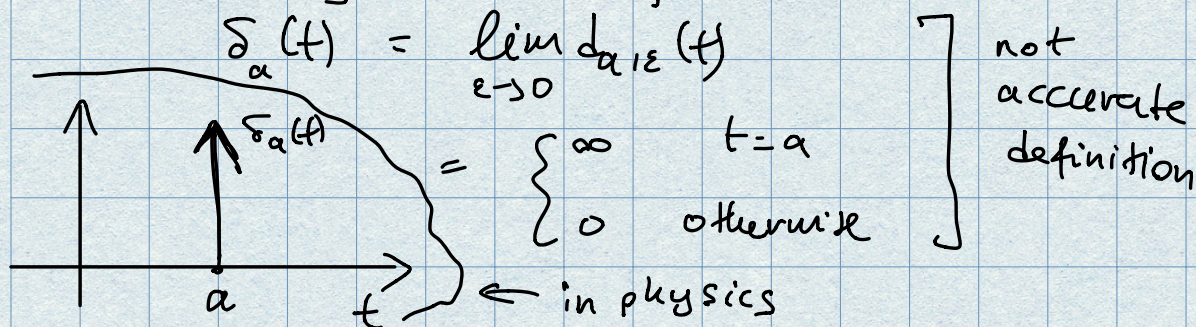 δ_a(t) = lim_{ε→0} d_{a,ε}(t)
= { ∞ t=a
0 otherwise
not
acccurate
definition
δ_a(t)
a t
← in physics